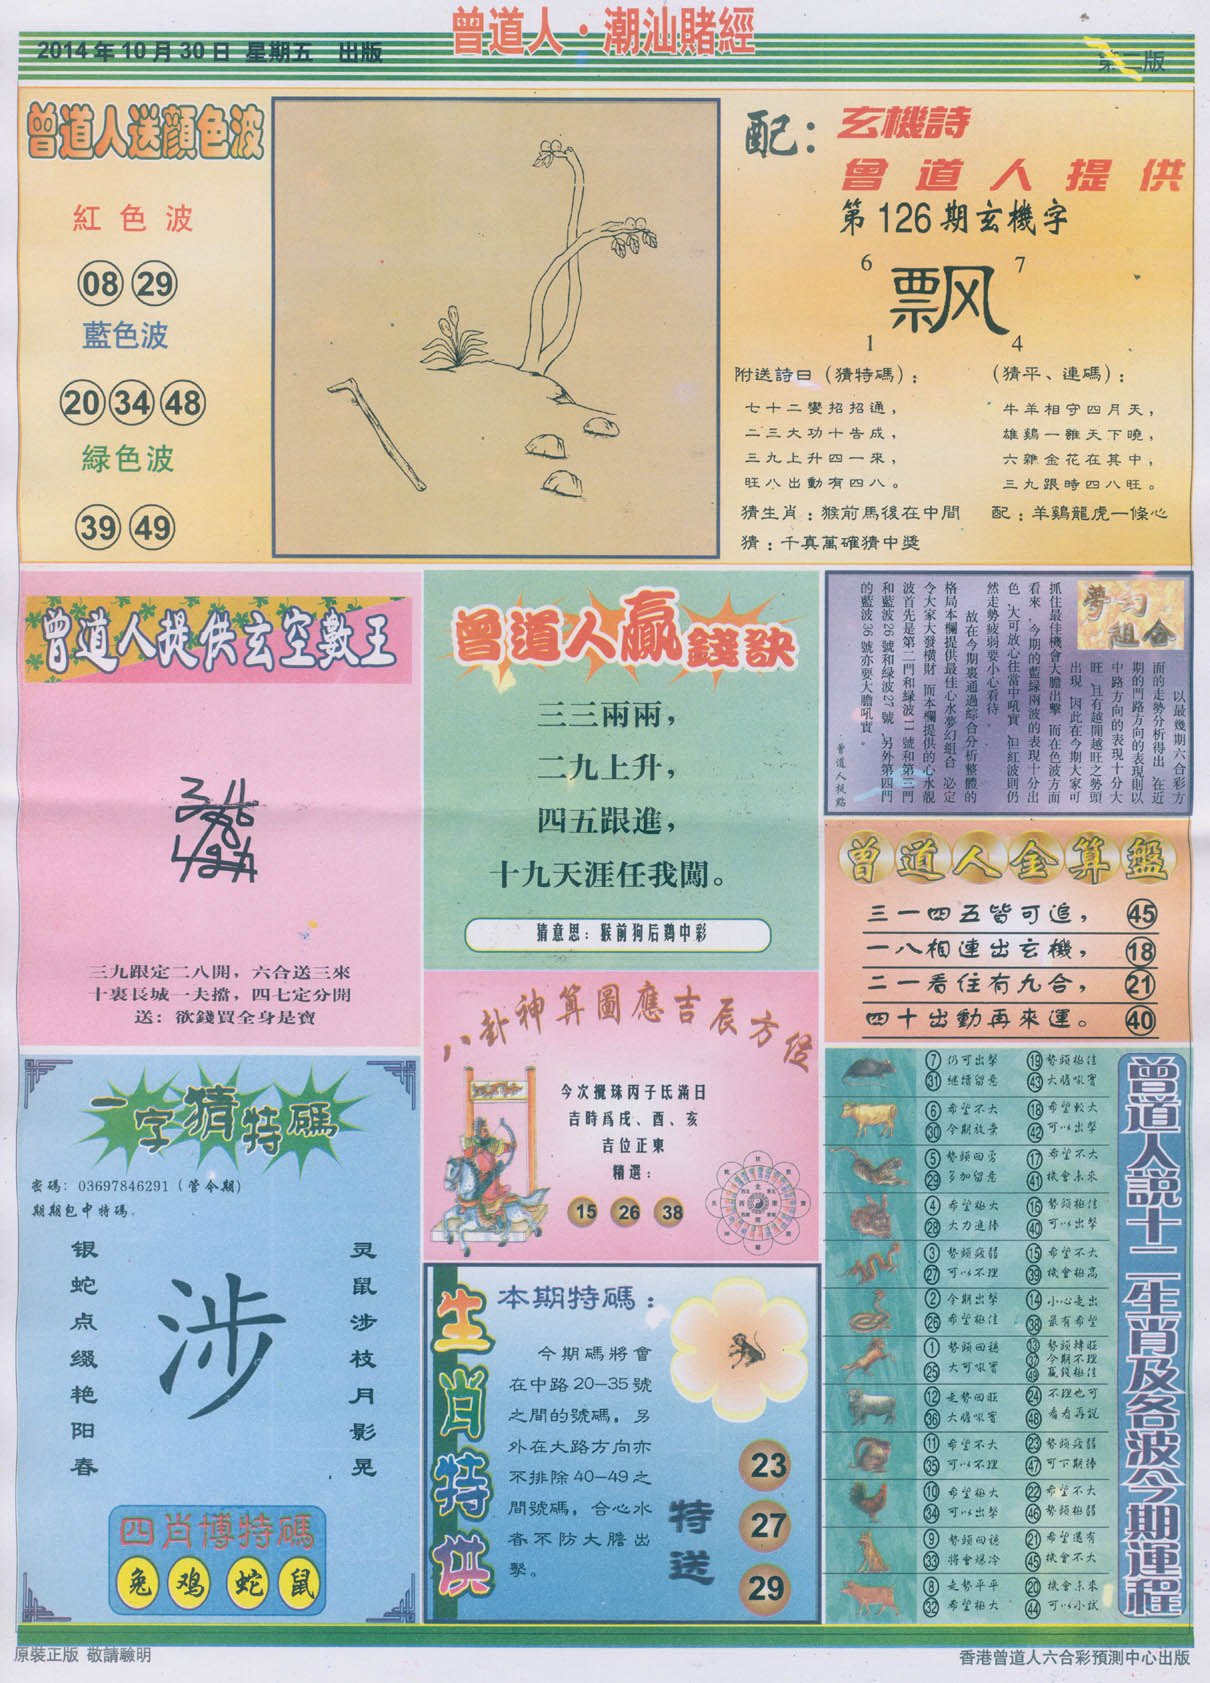 曾道人·潮汕賭經
2014年10月30日 星期五 出版
第二版
曾道人送顏色波
紅色波
08 29
藍色波
20 34 48
綠色波
39 49
配：玄機詩
曾道人提供
第126期玄機字
6 7
飘
1 4
附送詩曰（猜特碼）：
七十二變招招通，
二三大功十告成，
三九上升四一來，
旺八出動有四八。
猜生肖：猴前馬後在中間
猜：千真萬確猜中獎
（猜平、連碼）：
牛羊相守四月天，
雄鷄一雞天下曉，
六雜金花在其中，
三九跟時四八旺。
配：羊鷄龍虎一條心
曾道人提供玄空數王
三九跟定二八開，六合送三來
十裏長城一夫擋，四七定分開
送：欲錢買全身是寶
曾道人贏錢訣
三三兩兩，
二九上升，
四五跟進，
十九天涯任我闖。
猜意思：猴前狗后鷄中彩
夢幻組合
以最幾期六合彩方
面的走勢分析得出 在近
期的門路方向的表現則以
中路方向的表現十分大
旺 且有越開越旺之勢頭
出現 因此在今期大家可
抓住最佳機會大膽出擊 而在色波方面
看來，今期的藍綠兩波的表現十分出
色 大可放心往當中吼實 但紅波則仍
然走勢疲弱要小心看待。
故在今期裏通過綜合分析整體的
格局本欄提供最佳心水夢幻組合 必定
令大家大發橫財 而本欄提供的心水靚
波首先是第二門和緑波11號和第三門
和藍波26號和緑波27號 另外第四門
的藍波36號亦要大膽吼實。
曾道人提點
曾道人金算盤
三一四五皆可追， 45
一八相連出玄機， 18
二一看住有九合， 21
四十出動再來運。 40
八卦神算圖應吉辰方位
今次攪珠丙子氐滿日
吉時爲戌、酉、亥
吉位正東
精選：
15 26 38
一字猜特碼
密碼：03697846291（管令期）
期期包中特碼。
银蛇点缀艳阳春
涉
灵鼠涉枝月影晃
四肖博特碼
兔 鸡 蛇 鼠
生肖特供
本期特碼：
今期碼將會
在中路20—35號
之間的號碼，另
外在大路方向亦
不排除40—49之
間號碼，合心水
者不防大膽出
擊。
特送
23
27
29
曾道人說十二生肖及各波今期運程
7 仍可出擊 19 勢頭極佳
31 繼續留意 43 大膽吼實
6 希望不大 18 希望較大
30 今期放棄 42 可以出擊
5 勢頭回勇 17 希望不大
29 多加留意 41 機會未來
4 希望極大 16 勢頭極佳
28 大力進捧 40 可以出擊
3 勢頭疲弱 15 希望不大
27 可以不理 39 機會極高
2 今期出擊 14 小心走出
26 希望極佳 38 最有希望
1 勢頭回穩 13 勢頭轉旺
25 大可吼實 37 今期不理
49 贏錢極佳
12 走勢回旺 24 不理也可
36 大膽吼實 48 看看再說
11 希望不大 23 勢頭疲弱
35 可以不理 47 可下期捧
10 希望極大 22 希望不大
34 可以出擊 46 勢頭極弱
9 勢頭回穩 21 希望還有
33 將會爆冷 45 機會不大
8 走勢平平 20 機會未來
32 希望極大 44 可以小試
原裝正版 敬請驗明
香港曾道人六合彩預測中心出版